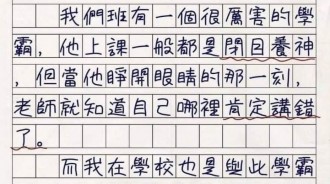 我們班有一個很厲害的學
霸，他上課一般都是閉目養神
，但當他睜開眼睛的那一刻，
老師就知道自己哪裡肯定講錯
了。
而我在學校也是與此學霸